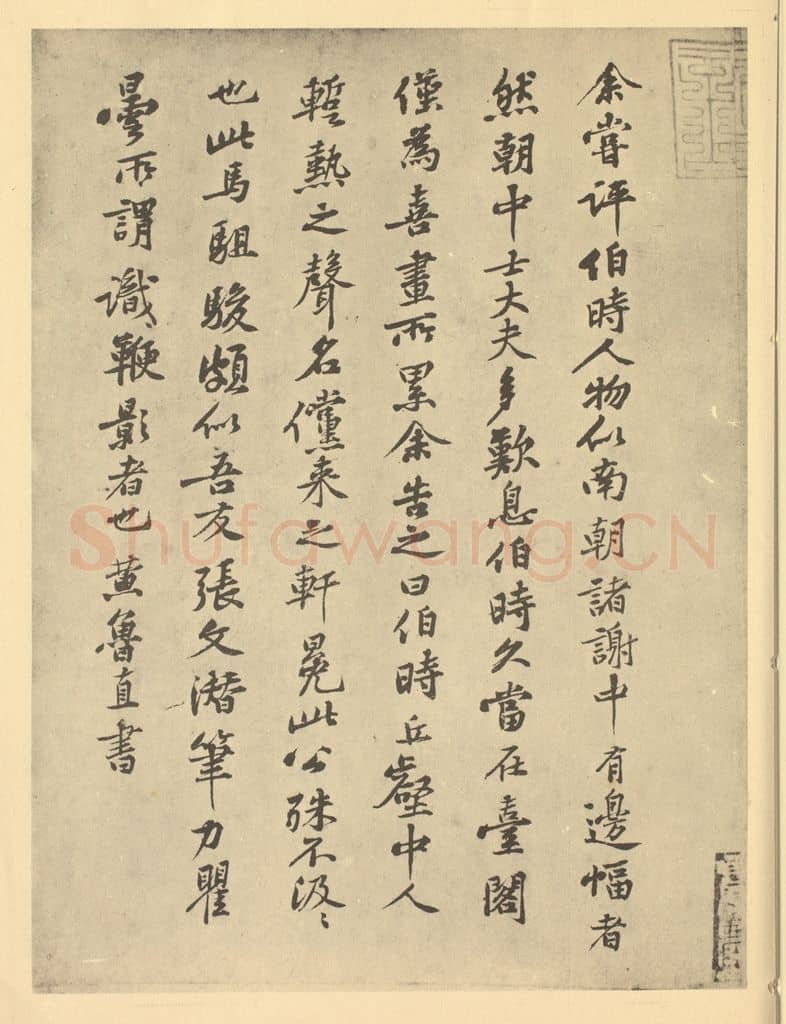 余嘗評伯時人物似南朝諸謝中有邊幅者
然朝中士大夫多歎息伯時久當在臺閣
僅為喜畫所累余告之曰伯時丘壑中人
暫熱之聲名儻来之軒冕此公殊不汲〻
也此馬駔駿頗似吾友張文潜筆力瞿
曇所謂識鞭影者也黄魯直書
Shufawang.CN